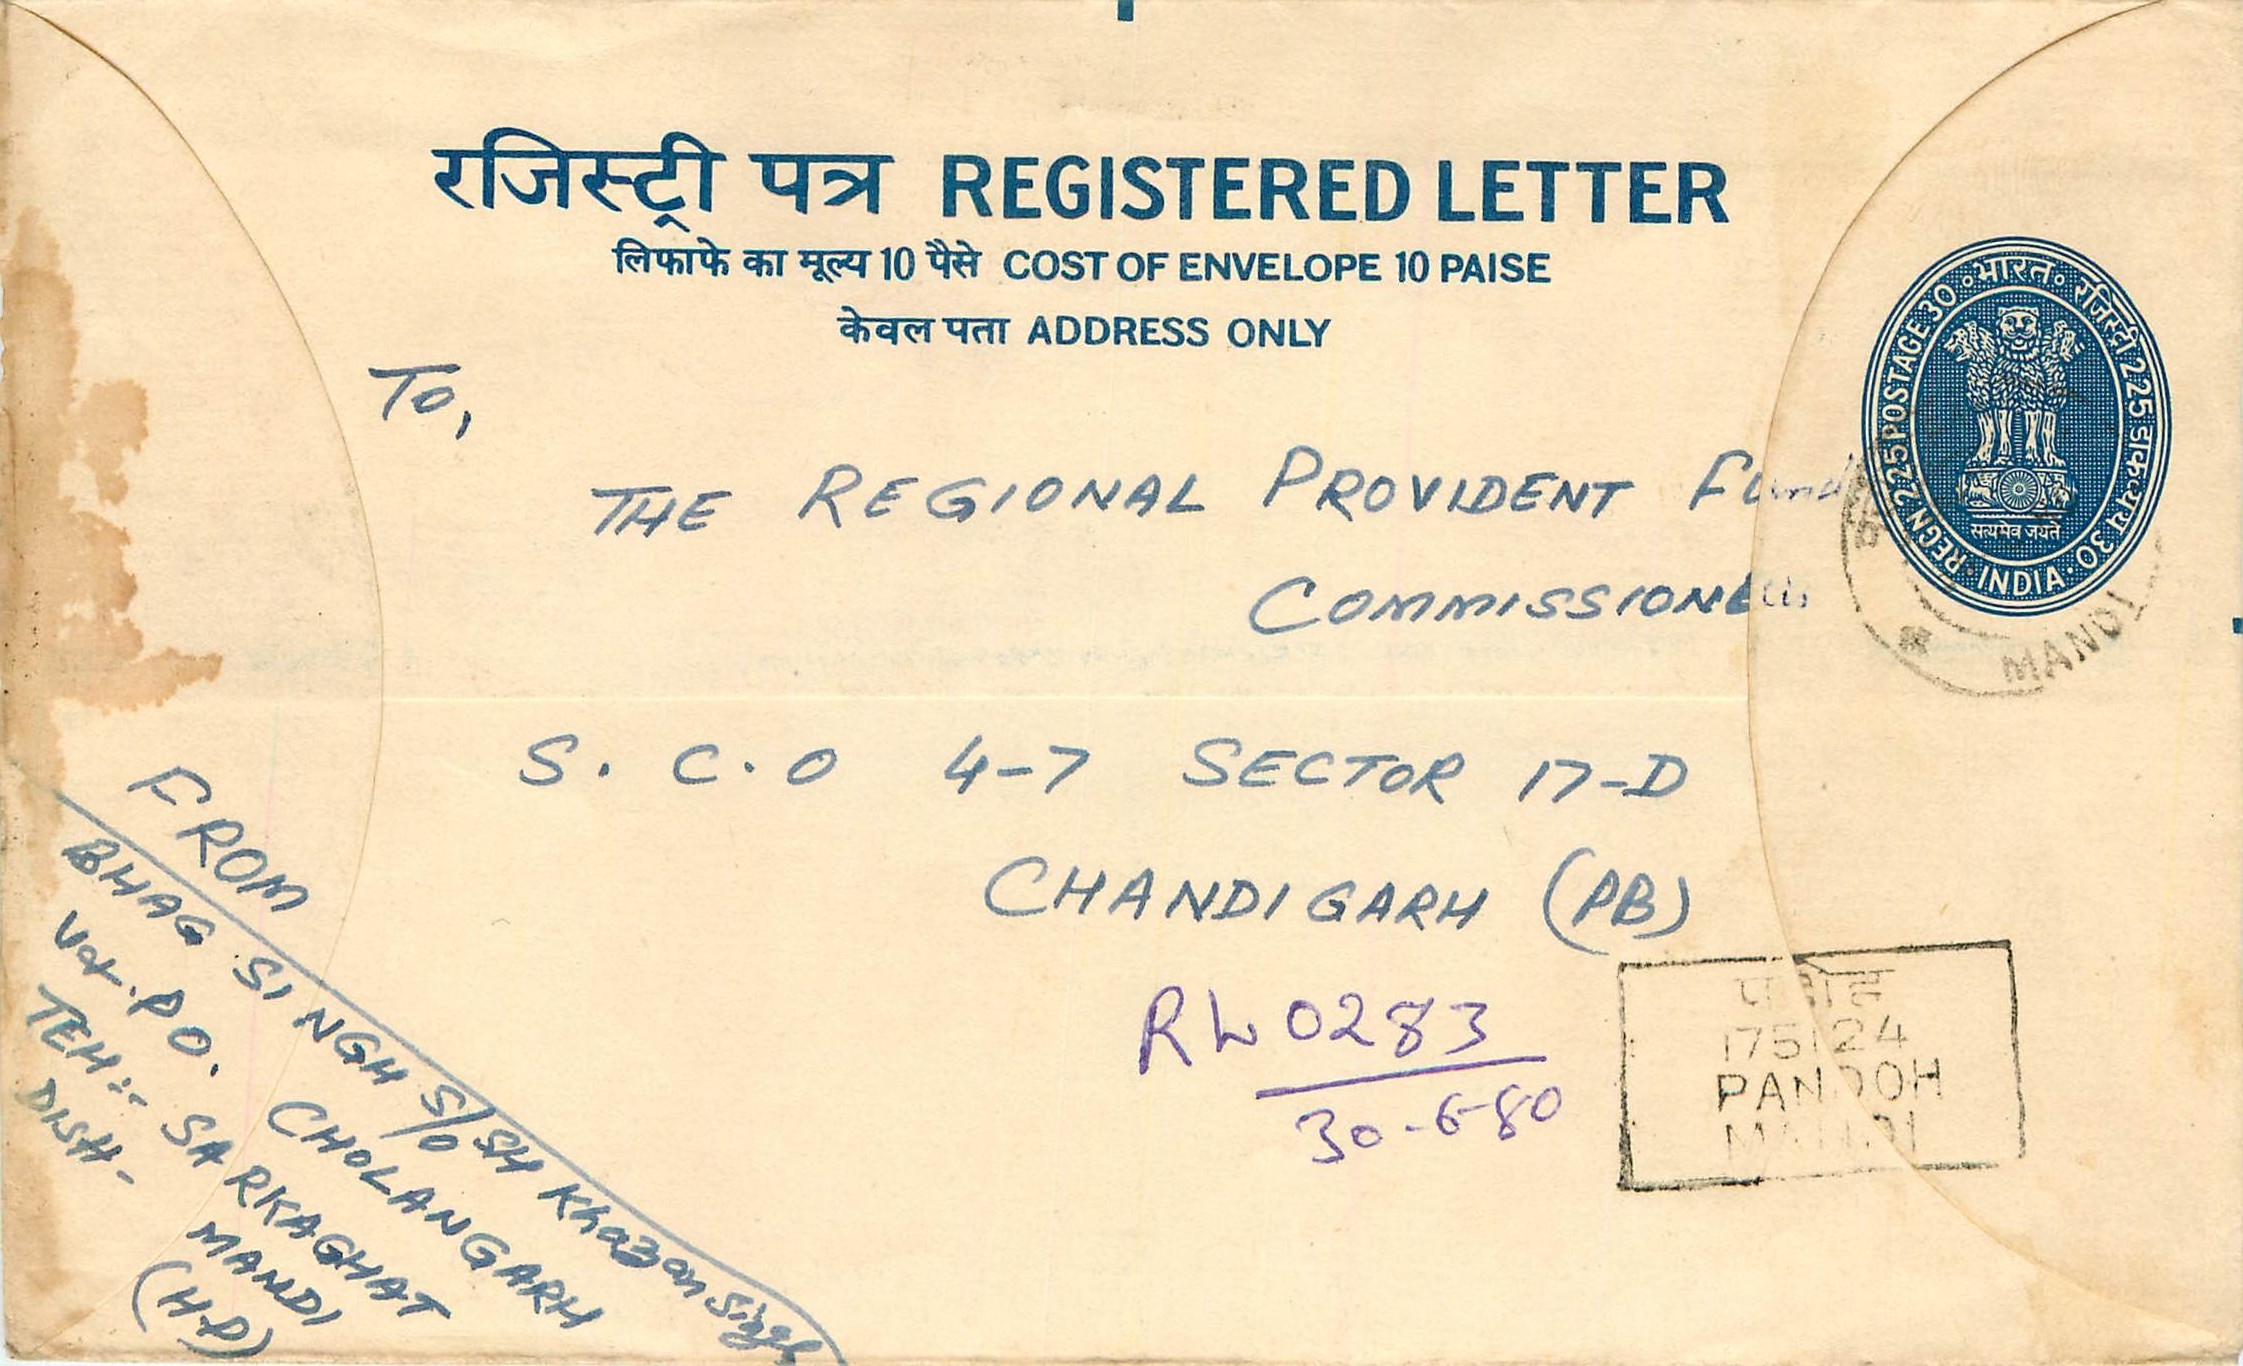 रजिस्ट्री पत्र REGISTERED LETTER
लिफाफे का मूल्य 10 पैसे COST OF ENVELOPE 10 PAISE
केवल पता ADDRESS ONLY
भारत रजिस्ट्री 225 डाकव्यय 30
REGN 225 POSTAGE 30
INDIA
सत्यमेव जयते
MANDI
To,
THE REGIONAL PROVIDENT Fund
COMMISSIONER
S. C. O 4-7 SECTOR 17-D
CHANDIGARH (PB)
RL 0283
30-6-80
175124
PANDOH
MANDI
FROM
BHAG SINGH S/O SH Khazan Singh
PO. CHOLANGARH
TEH:- SARKAGHAT
MANDI
(H.P)